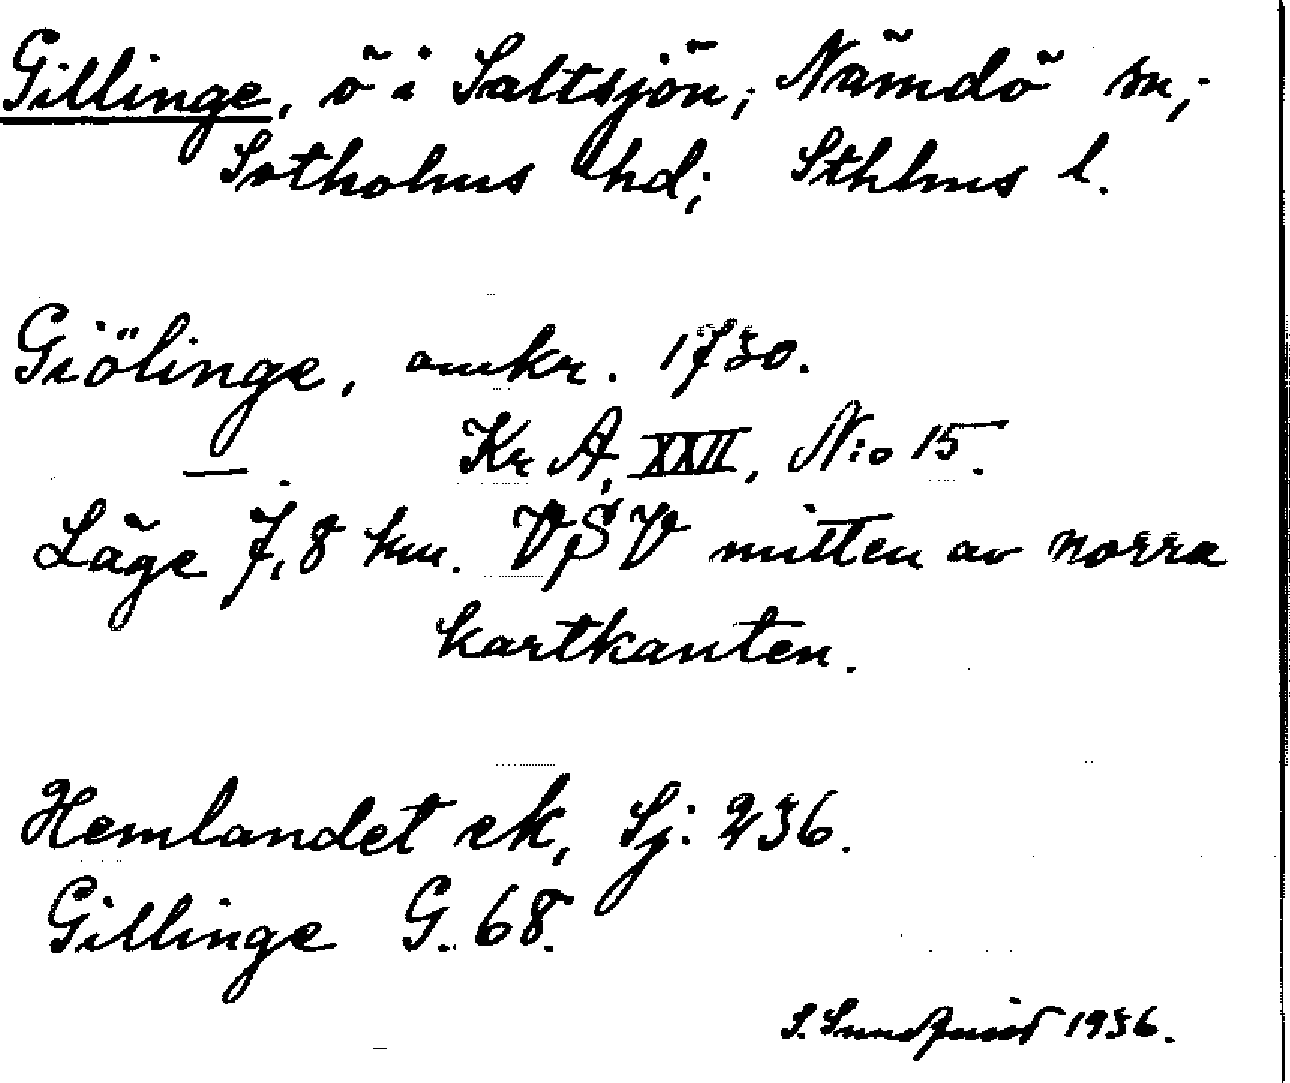 Gillinge, ö i Saltsjön; Nämdö sn;
Sotholms hd; Sthlms l.
Giölinge, omkr. 1730.
—. Kr A, XXII, N:o 15.
Läge 7,8 km. VSV mitten av norra
kartkanten.
Hemlandet ek, Sj: 236.
Gillinge G. 68.
S. Sundquist 1936.